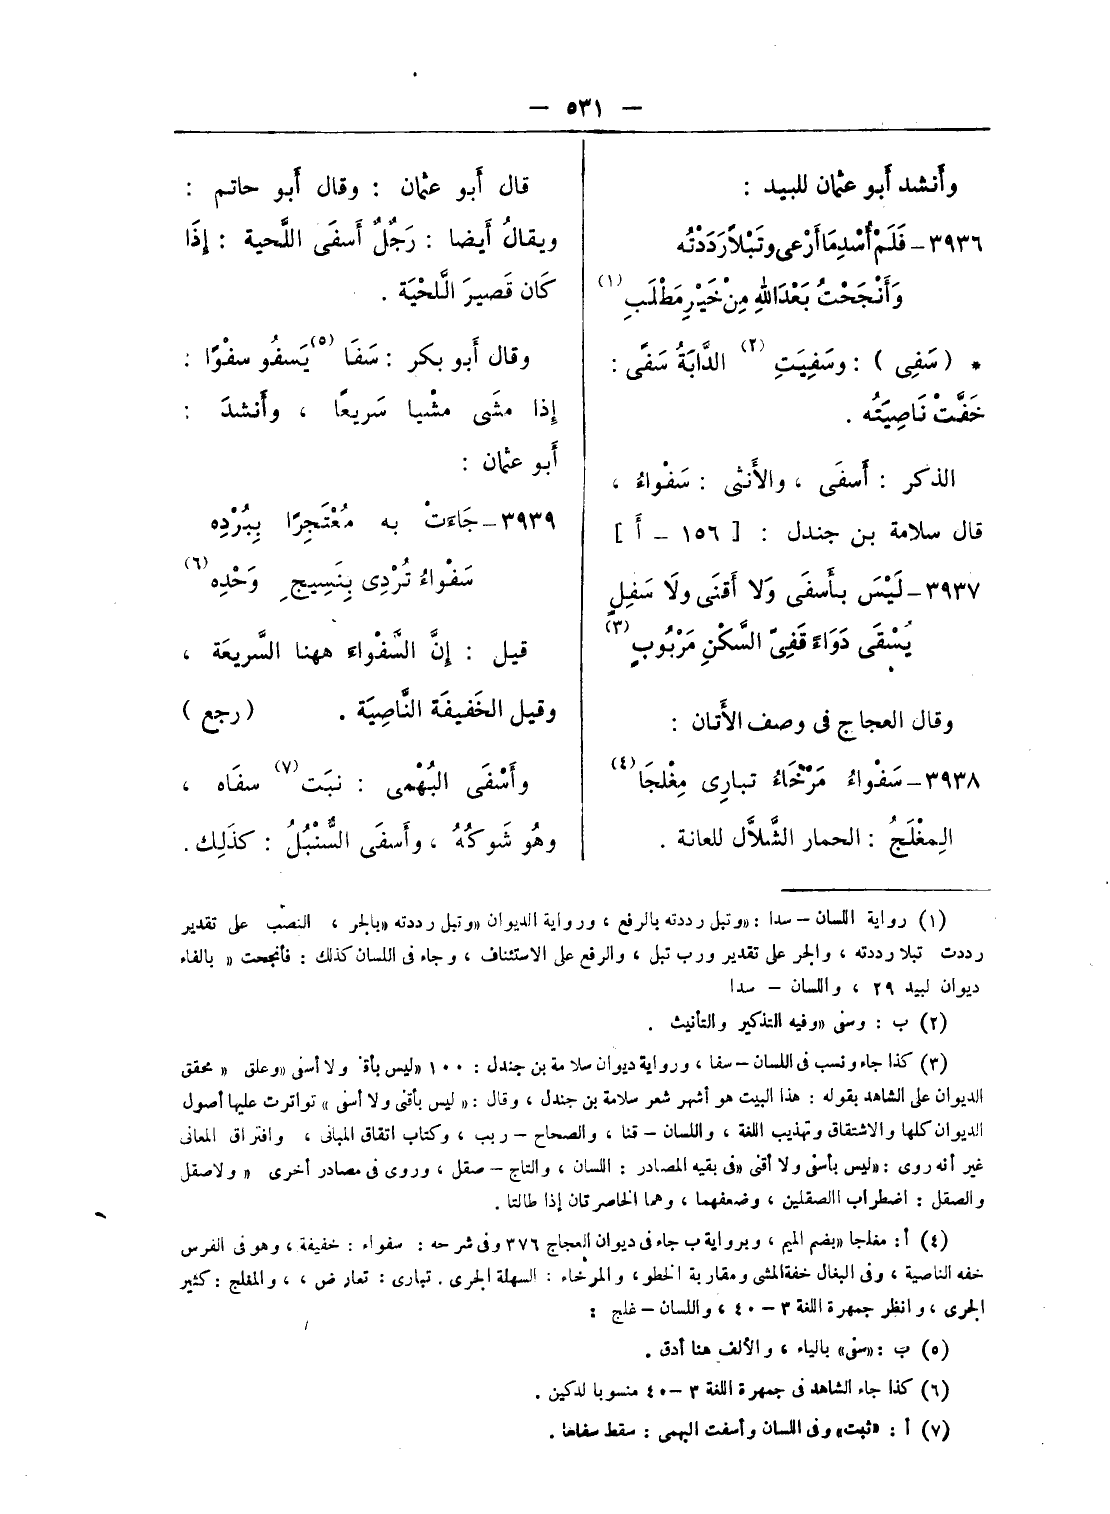 — ٥٣١ —
وأنشد أبو عثمان للبيد :
٣٩٣٦ – فَلَمْ أُسْدِ مَا أَرْعى وتَبْلاً رَدَدْتُه
وَأَنْجَحْتُ بَعْدَ اللهِ مِنْ خَيْرِ مَطْلَبِ (١)
* ( سَفِى ) : وسَفِيَتِ (٢) الدَّابَةُ سَفًى :
خَفَّتْ نَاصِيَتُه .
الذكر : أَسفَى ، والأُنثى : سَفْواءُ ،
قال سلامة بن جندل : [ ١٥٦ – أ ]
٣٩٣٧ – لَيْسَ بأَسفَى وَلا أَقنَى ولَا سَفِلٍ
يُسْقَى دَوَاءَ قَفِىّ السَّكْنِ مَرْبُوبِ (٣)
وقال العجاج فى وصف الأَتان :
٣٩٣٨ – سَفْواءُ مَرْخَاءُ تبارِى مِغْلجَا (٤)
المِغْلَجُ : الحمار الشَّلاَّل للعانة .
قال أَبو عثمان : وقال أَبو حاتم :
ويقالُ أَيضا : رَجُلٌ أَسفَى اللَّحية : إِذَا
كَان قَصِيرَ الَّلحْيَة .
وقال أَبو بكر : سَفَا (٥) يَسفُو سفْوًا :
إِذا مشَى مشْيا سَريعًا ، وأَنشدَ :
أَبو عثمان :
٣٩٣٩ – جَاءَتْ به مُعْتَجِرًا بِبُرْدِه
سَفْواءُ تُرْدِى بِنَسِيجِ وَحْدِه (٦)
قيل : إِنَّ السَّفْواءَ ههنا السَّريعَة ،
وقيل الخَفيفَة النَّاصِيَة . ( رجع )
وأَسْفَى البُهْمى : نبَت (٧) سفَاه ،
وهُو شَوكُهُ ، وأَسفَى السُّنْبُلُ : كذَلِك .
(١) رواية اللسان – سدا : «وتبل رددته بالرفع ، ورواية الديوان «وتبل رددته «بالجر ، النصب على تقدير
رددت تبلا رددته ، والجر على تقدير ورب تبل ، والرفع على الاستئناف ، وجاء فى اللسان كذلك : فأنجحت « بالفاء
ديوان لبيد ٢٩ ، واللسان – سدا
(٢) ب : وسفى «وفيه التذكير والتأنيث .
(٣) كذا جاء ونسب فى اللسان – سفا ، ورواية ديوان سلامة بن جندل : ١٠٠ «ليس بأقنى ولا أسفى «وعلق « محقق
الديوان على الشاهد بقوله : هذا البيت هو أشهر شعر سلامة بن جندل ، وقال : « ليس بأقنى ولا أسفى » تواترت عليها أصول
الديوان كلها والاشتقاق وتهذيب اللغة ، واللسان – قنا ، والصحاح – ربب ، وكتاب اتفاق المبانى ، وافتراق المعانى
غير أنه روى : «ليس بأسفى ولا أقنى «فى بقيه المصادر : اللسان ، والتاج – صقل ، وروى فى مصادر أخرى « ولاصقل
والصقل : اضطراب االصقلين ، وضعفهما ، وهما الخاصرتان إذا طالتا .
(٤) أ : مغلجا «بضم الميم ، وبرواية ب جاء فى ديوان العجاج ٣٧٦ وفى شرحه : سفواء : خفيفة ، وهو فى الفرس
خفه الناصية ، وفى البغال خفةالمشى ومقاربة الخطو ، والمرخاء : السهلة الجرى . تبارى : تعارض ، ، والمغلج : كثير
الجرى ، وانظر جمهرة اللغة ٣ – ٤٠ ، واللسان – غلج :
(٥) ب : «سفى» بالياء ، والألف هنا أدق .
(٦) كذا جاء الشاهد فى جمهرة اللغة ٣ – ٤٠ منسوبا لدكين .
(٧) أ : «ثبت» وفى اللسان وأسفت البهمى : سقط سفاها .